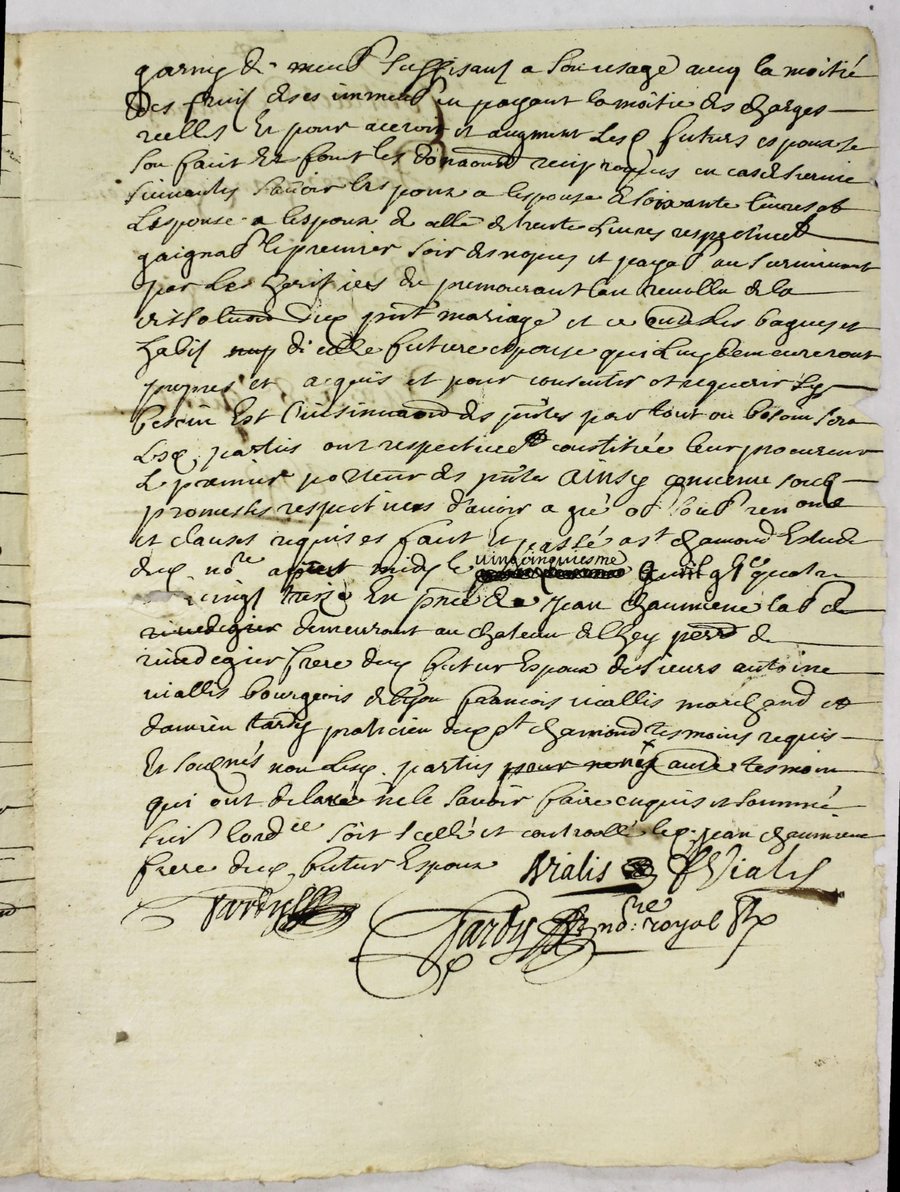 garny de meub suffisans a son usage avecq la moitié
des fruis de ses immeub en payant la moitie des charges
reelles Et pour acroit et augment Lesd futurs espoux se
son faict Et font les donaons reciproques en cas de survie
suivantes savoir lespoux a lespouse de soixante livres et
Lespouse a lespoux de celle de trente Livres respectivet
gaignab le premier soir des nopces et payab au survivant
par Les heritiers du premourant en
dissoluon dud pnt mariage et ce outre les bagues et
habis di celle future espouse qui Luy demeureront
propres et acquis et pour consentir et requerir sy
besoin Est Linsinuaon des pntes par tout ou besoin sera
Lesd parties ont respectivet constitué leur procureur
Le premier porteur des pntes Ainsy convenu soub
promesses respectives davoir a gré ob soub renons
et clauses requises faict et passé a st chamond Estude
dud nore apres midy le vingcinquiesme avril 9t six cent quatre
vingt treze En pnce de Jean chaumiene lab de
rivedegier demeurant au chateau de perr de
rivedegier frere dud futur Espoux de sieurs antoine
viallis bourgeois de Lyon francois viallis marchand et
damien tardy praticien dud st chamond tesmoins requis
Et soubsnés non Lesd parties autre tesmoin
qui ont declaré ne le savoir faire enquis et sommé
suiv lordce soit scellé et controllé led Jean chaumiene
frere dud futur Espoux AVialis fVialis
Tardy
Tardy nore royal